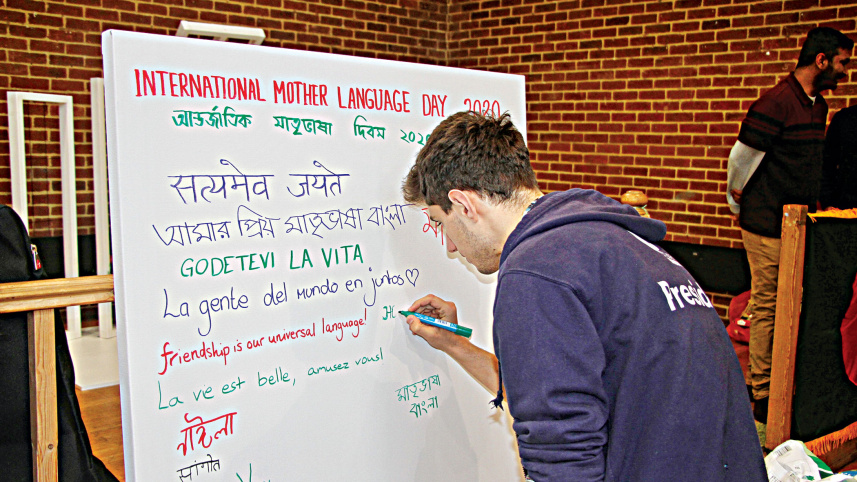 INTERNATIONAL MOTHER LANGUAGE DAY 2020
আন্তর্জাতিক মাতৃভাষা দিবস ২০২
सत्यमेव जयते
আমার প্রিয় মাতৃভাষা বাংলা
GODETEVI LA VITA
La gente del mundo en juntos♡
friendship is our universal language!
La vie est belle, amusez vous!
মাতৃভাষা
বাংলা
Presid